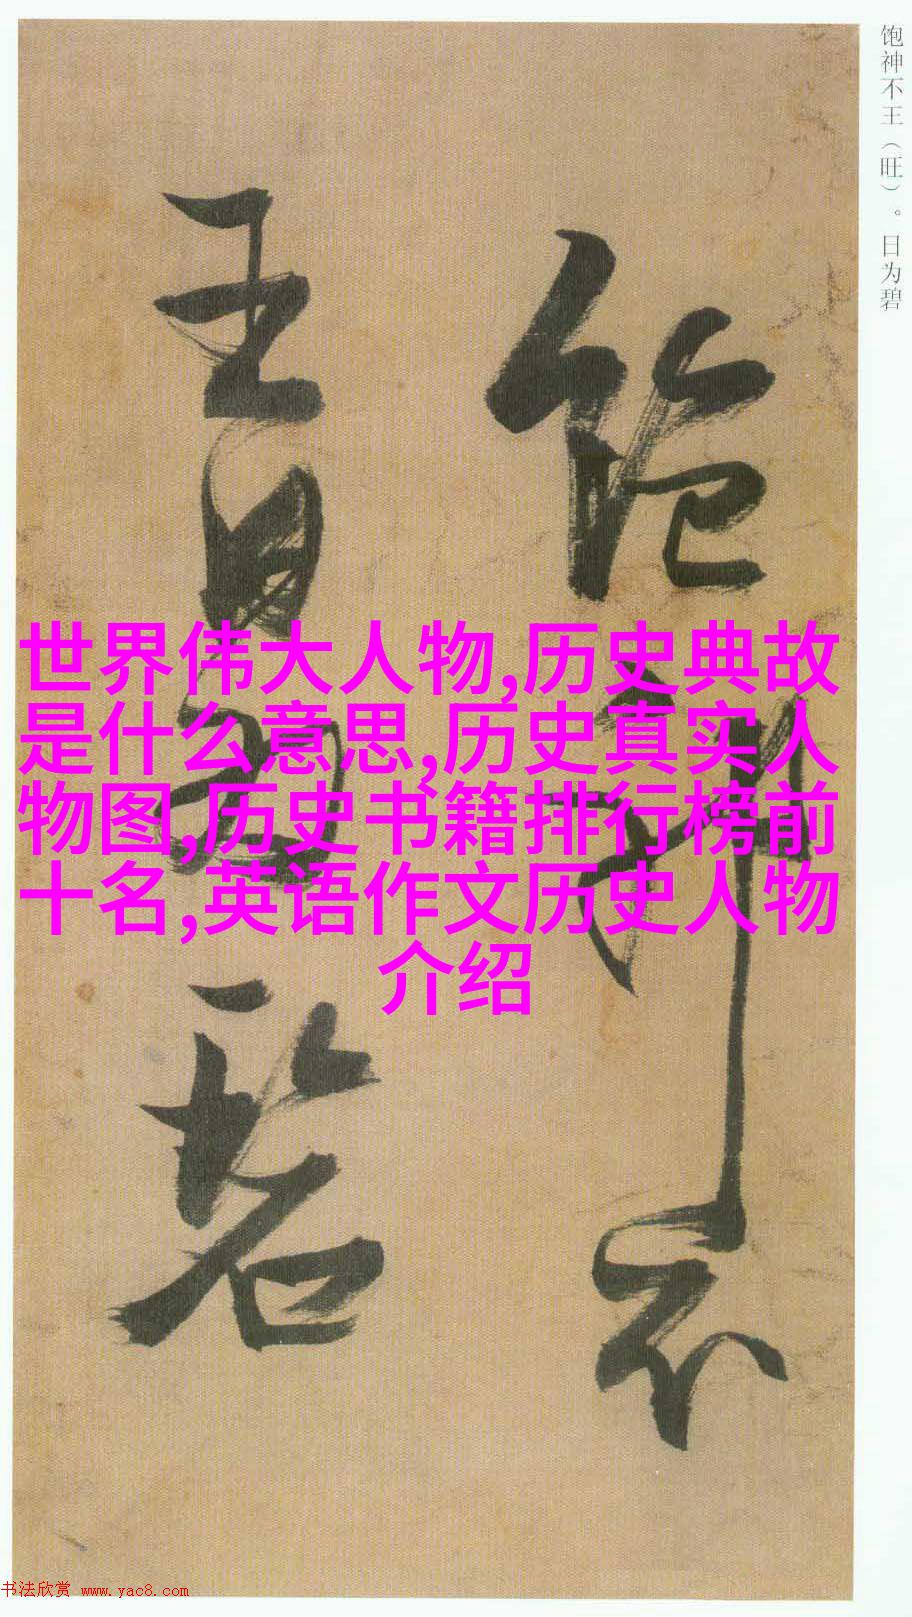 饱神不王（旺）。日为碧
饱神不
王日为碧
世界伟大人物,历史典故
是什么意思,历史真实人
物图,历史书籍排行榜前
十名,英语作文历史人物
介绍
书法欣赏 www.yac8.com